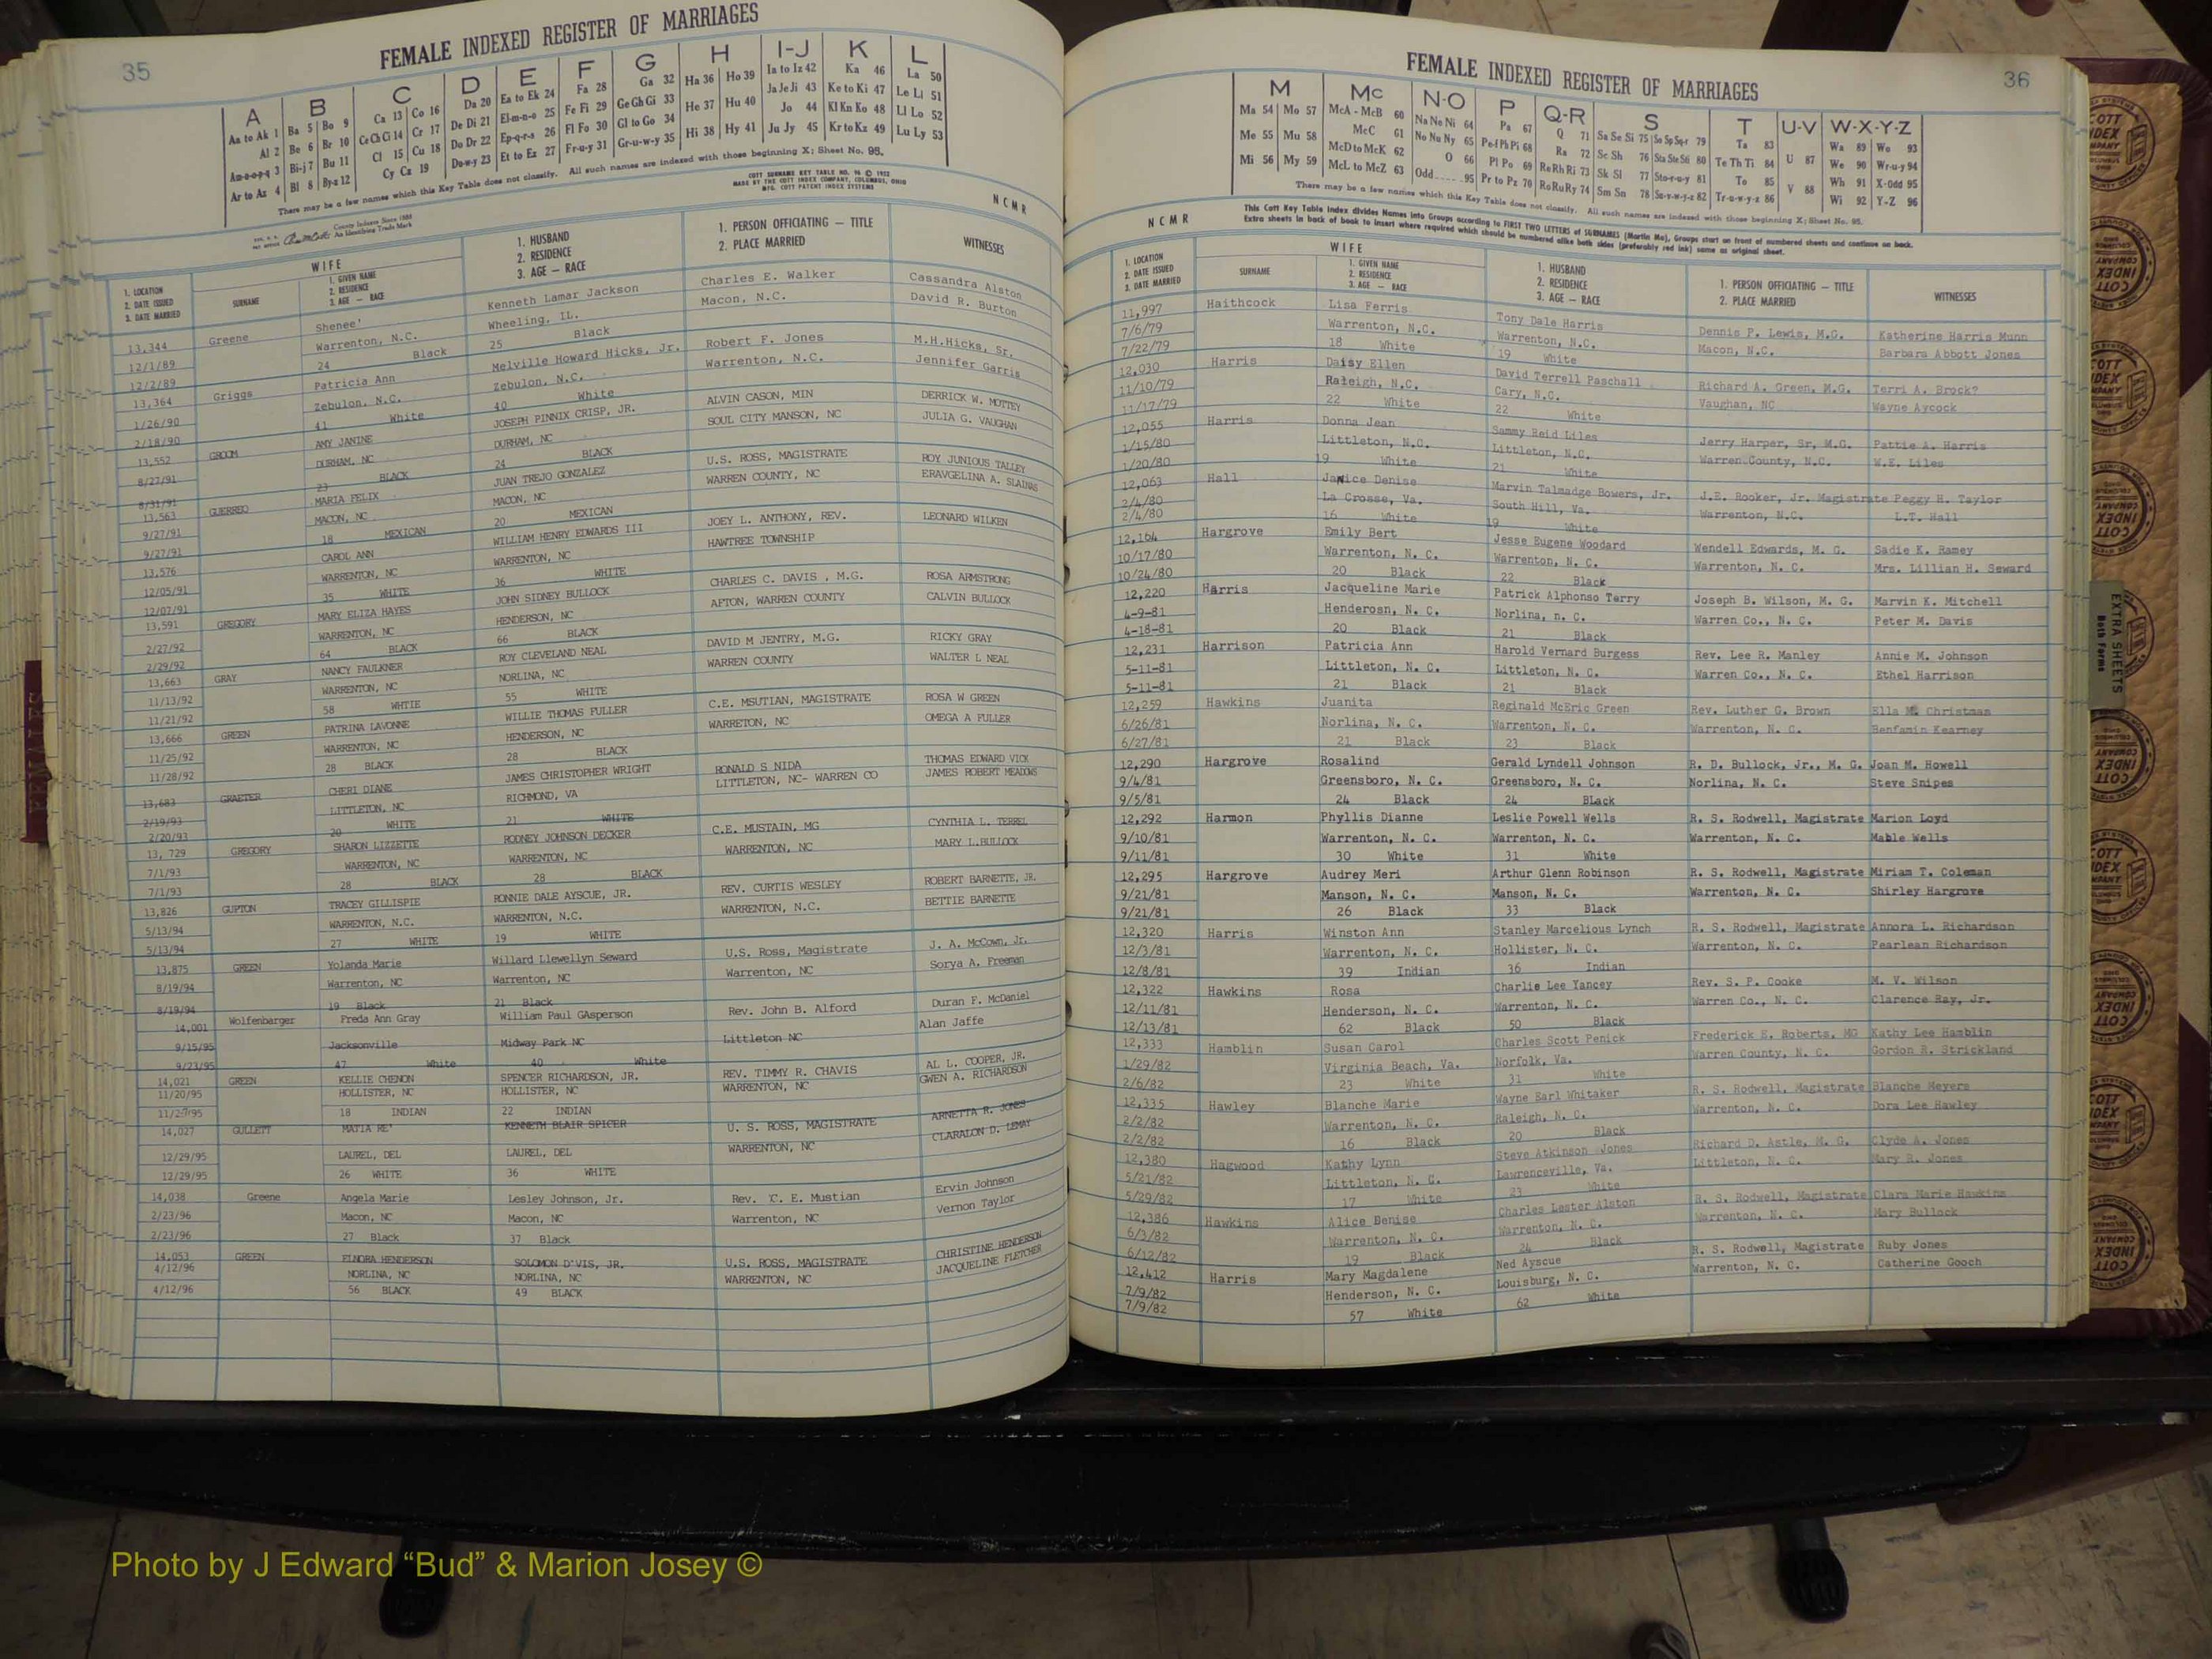 35
FEMALE INDEXED REGISTER OF MARRIAGES
A B C D E F G H I-J K L
Aa to Ak 1 Ba 5 Bo 9 Ca 13 Co 16 Da 20 Ea to Ek 24 Fa 28 Ga 32 Ha 36 Ho 39 Ia to Iz 42 Ka 46 La 50
Al 2 Be 6 Br 10 Ce Ch Ci 14 Cr 17 De Di 21 El-m-n-o 25 Fe Fi 29 Ge Gh Gi 33 He 37 Hu 40 Ja Je Ji 43 Ke to Ki 47 Le Li 51
Am-n-o-p-q 3 Bi-j 7 Bu 11 Cl 15 Cu 18 Do Dr 22 Ep-q-r-s 26 Fl Fo 30 Gl to Go 34 Hi 38 Hy 41 Jo 44 Kl Kn Ko 48 Ll Lo 52
Ar to Az 4 Bl 8 By-z 12 Cy Cz 19 Du-w-y 23 Et to Ez 27 Fr-u-y 31 Gr-u-w-y 35 Ju Jy 45 Kr to Kz 49 Lu Ly 53
There may be a few names which this Key Table does not classify. All such names are indexed with those beginning X; Sheet No. 95.
COTT SURNAME KEY TABLE NO. 96 © 1952
MADE BY THE COTT INDEX COMPANY, COLUMBUS, OHIO
MFG. COTT PATENT INDEX SYSTEMS
County Indexes Since 1888
An Identifying Trade Mark
NCMR
1. LOCATION 2. DATE ISSUED 3. DATE MARRIED
WIFE
SURNAME
1. GIVEN NAME 2. RESIDENCE 3. AGE — RACE
1. HUSBAND 2. RESIDENCE 3. AGE — RACE
1. PERSON OFFICIATING — TITLE 2. PLACE MARRIED
WITNESSES
13,344 Greene Shenee' Kenneth Lamar Jackson Charles E. Walker Cassandra Alston
12/1/89 Warrenton, N.C. Wheeling, IL. Macon, N.C. David R. Burton
12/2/89 24 Black 25 Black
13,364 Griggs Patricia Ann Melville Howard Hicks, Jr. Robert F. Jones M.H.Hicks, Sr.
1/26/90 Zebulon, N.C. Zebulon, N.C. Warrenton, N.C. Jennifer Garris
2/18/90 41 White 40 White
13,552 GROOM AMY JANINE JOSEPH PINNIX CRISP, JR. ALVIN CASON, MIN DERRICK W. MOTTEY
8/27/91 DURHAM, NC DURHAM, NC SOUL CITY MANSON, NC JULIA G. VAUGHAN
8/31/91 23 BLACK 24 BLACK
13,563 GUERREO MARIA FELIX JUAN TREJO GONZALEZ U.S. ROSS, MAGISTRATE ROY JUNIOUS TALLEY
9/27/91 MACON, NC MACON, NC WARREN COUNTY, NC ERAVGELINA A. SLAINAS
9/27/91 18 MEXICAN 20 MEXICAN
13,576 CAROL ANN WILLIAM HENRY EDWARDS III JOEY L. ANTHONY, REV. LEONARD WILKEN
12/05/91 WARRENTON, NC WARRENTON, NC HAWTREE TOWNSHIP
12/07/91 35 WHITE 36 WHITE
13,591 GREGORY MARY ELIZA HAYES JOHN SIDNEY BULLOCK CHARLES C. DAVIS , M.G. ROSA ARMSTRONG
2/27/92 WARRENTON, NC HENDERSON, NC AFTON, WARREN COUNTY CALVIN BULLOCK
2/29/92 64 BLACK 66 BLACK
13,663 GRAY NANCY FAULKNER ROY CLEVELAND NEAL DAVID M JENTRY, M.G. RICKY GRAY
11/13/92 WARRENTON, NC NORLINA, NC WARREN COUNTY WALTER L NEAL
11/21/92 58 WHTIE 55 WHITE
13,666 GREEN PATRINA LAVONNE WILLIE THOMAS FULLER C.E. MSUTIAN, MAGISTRATE ROSA W GREEN
11/25/92 WARRENTON, NC HENDERSON, NC WARRETON, NC OMEGA A FULLER
11/28/92 28 BLACK 28 BLACK
13,683 GRAETER CHERI DIANE JAMES CHRISTOPHER WRIGHT RONALD S NIDA THOMAS EDWARD VICK
2/19/93 LITTLETON, NC RICHMOND, VA LITTLETON, NC- WARREN CO JAMES ROBERT MEADOWS
2/20/93 20 WHITE 21 WHITE
13, 729 GREGORY SHARON LIZZETTE RODNEY JOHNSON DECKER C.E. MUSTAIN, MG CYNTHIA L. TERREL
7/1/93 WARRENTON, NC WARRENTON, NC WARRENTON, NC MARY L.BULLOCK
7/1/93 28 BLACK 28 BLACK
13,826 GUPTON TRACEY GILLISPIE RONNIE DALE AYSCUE, JR. REV. CURTIS WESLEY ROBERT BARNETTE, JR.
5/13/94 WARRENTON, N.C. WARRENTON, N.C. WARRENTON, N.C. BETTIE BARNETTE
5/13/94 27 WHITE 19 WHITE
13,875 GREEN Yolanda Marie Willard Llewellyn Seward U.S. Ross, Magistrate J. A. McCown, Jr.
8/19/94 Warrenton, NC Warrenton, NC Warrenton, NC Sorya A. Freeman
8/19/94 19 Black 21 Black
14,001 Wolfenbarger Freda Ann Gray William Paul GAsperson Rev. John B. Alford Duran F. McDaniel
9/15/95 Jacksonville Midway Park NC Littleton NC Alan Jaffe
9/23/95 47 White 40 White
14,021 GREEN KELLIE CHENON SPENCER RICHARDSON, JR. REV. TIMMY R. CHAVIS AL L. COOPER, JR.
11/20/95 HOLLISTER, NC HOLLISTER, NC WARRENTON, NC GWEN A. RICHARDSON
11/25/95 18 INDIAN 22 INDIAN
14,027 GULLETT MATIA RE' KENNETH BLAIR SPICER U. S. ROSS, MAGISTRATE ARNETTA R. JONES
12/29/95 LAUREL, DEL LAUREL, DEL WARRENTON, NC CLARALON D. LEMAY
12/29/95 26 WHITE 36 WHITE
14,038 Greene Angela Marie Lesley Johnson, Jr. Rev. C. E. Mustian Ervin Johnson
2/23/96 Macon, NC Macon, NC Warrenton, NC Vernon Taylor
2/23/96 27 Black 37 Black
14,053 GREEN ELNORA HENDERSON SOLOMON D'VIS, JR. U.S. ROSS, MAGISTRATE CHRISTINE HENDERSON
4/12/96 NORLINA, NC NORLINA, NC WARRENTON, NC JACQUELINE FLETCHER
4/12/96 56 BLACK 49 BLACK
FEMALE INDEXED REGISTER OF MARRIAGES
36
M Mc N-O P Q-R S T U-V W-X-Y-Z
Ma 54 Mo 57 McA - McB 60 Na Ne Ni 64 Pa 67 Q 71 Sa Se Si 75 So Sp Sq-r 79 Ta 83 U 87 Wa 89 Wo 93
Me 55 Mu 58 McC 61 No Nu Ny 65 Pe-f Ph Pi 68 Ra 72 Sc Sh 76 Sta Ste Sti 80 Te Th Ti 84 We 90 Wr-u-y 94
Mi 56 My 59 McD to McK 62 O 66 Pl Po 69 Re Rh Ri 73 Sk Sl 77 Sto-r-u-y 81 To 85 V 88 Wh 91 X-Odd 95
McL to McZ 63 Odd 95 Pr to Pz 70 Ro Ru Ry 74 Sm Sn 78 Su-v-w-y-z 82 Tr-u-w-y-z 86 Wi 92 Y-Z 96
There may be a few names which this Key Table does not classify. All such names are indexed with those beginning X; Sheet No. 95.
NCMR
This Cott Key Table Index divides Names into Groups according to FIRST TWO LETTERS of SURNAMES (Martin Ma), Groups start on front of numbered sheets and continue on back.
Extra sheets in back of book to insert where required which should be numbered alike both sides (preferably red ink) same as original sheet.
1. LOCATION 2. DATE ISSUED 3. DATE MARRIED
WIFE
SURNAME
1. GIVEN NAME 2. RESIDENCE 3. AGE — RACE
1. HUSBAND 2. RESIDENCE 3. AGE — RACE
1. PERSON OFFICIATING — TITLE 2. PLACE MARRIED
WITNESSES
11,997 Haithcock Lisa Ferris Tony Dale Harris Dennis P. Lewis, M.G. Katherine Harris Munn
7/6/79 Warrenton, N.C. Warrenton, N.C. Macon, N.C. Barbara Abbott Jones
7/22/79 18 White 19 White
12,030 Harris Daisy Ellen David Terrell Paschall Richard A. Green, M.G. Terri A. Brock?
11/10/79 Raleigh, N.C. Cary, N.C. Vaughan, NC Wayne Aycock
11/17/79 22 White 22 White
12,055 Harris Donna Jean Sammy Reid Liles Jerry Harper, Sr, M.G. Pattie A. Harris
1/15/80 Littleton, N.C. Littleton, N.C. Warren County, N.C. W.E. Liles
1/20/80 19 White 21 White
12,063 Hall Janice Denise Marvin Talmadge Bowers, Jr. J.E. Rooker, Jr. Magistrate Peggy H. Taylor
2/4/80 La Crosse, Va. South Hill, Va. Warrenton, N.C. L.T. Hall
2/4/80 16 White 19 White
12,164 Hargrove Emily Bert Jesse Eugene Woodard Wendell Edwards, M. G. Sadie K. Ramey
10/17/80 Warrenton, N. C. Warrenton, N. C. Warrenton, N. C. Mrs. Lillian H. Seward
10/24/80 20 Black 22 Black
12,220 Harris Jacqueline Marie Patrick Alphonso Terry Joseph B. Wilson, M. G. Marvin K. Mitchell
4-9-81 Henderosn, N. C. Norlina, n. C. Warren Co., N. C. Peter M. Davis
4-18-81 20 Black 21 Black
12,231 Harrison Patricia Ann Harold Vernard Burgess Rev. Lee R. Manley Annie M. Johnson
5-11-81 Littleton, N. C. Littleton, N. C. Warren Co., N. C. Ethel Harrison
5-11-81 21 Black 21 Black
12,259 Hawkins Juanita Reginald McEric Green Rev. Luther G. Brown Ella M. Christmas
6/26/81 Norlina, N. C. Warrenton, N. C. Warrenton, N. C. Benfamin Kearney
6/27/81 21 Black 23 Black
12,290 Hargrove Rosalind Gerald Lyndell Johnson R. D. Bullock, Jr., M. G. Joan M. Howell
9/4/81 Greensboro, N. C. Greensboro, N. C. Norlina, N. C. Steve Snipes
9/5/81 24 Black 24 BLack
12,292 Harmon Phyllis Dianne Leslie Powell Wells R. S. Rodwell, Magistrate Marion Loyd
9/10/81 Warrenton, N. C. Warrenton, N. C. Warrenton, N. C. Mable Wells
9/11/81 30 White 31 White
12,295 Hargrove Audrey Meri Arthur Glenn Robinson R. S. Rodwell, Magistrate Miriam T. Coleman
9/21/81 Manson, N. C. Manson, N. C. Warrenton, N. C. Shirley Hargrove
9/21/81 26 Black 33 Black
12,320 Harris Winston Ann Stanley Marcelious Lynch R. S. Rodwell, Magistrate Annora L. Richardson
12/3/81 Warrenton, N. C. Hollister, N. C. Warrenton, N. C. Pearlean Richardson
12/8/81 39 Indian 36 Indian
12,322 Hawkins Rosa Charlie Lee Yancey Rev. S. P. Cooke M. V. Wilson
12/11/81 Henderson, N. C. Warrenton, N. C. Warren Co., N. C. Clarence Ray, Jr.
12/13/81 62 Black 50 Black
12,333 Hamblin Susan Carol Charles Scott Penick Frederick E. Roberts, MG Kathy Lee Hamblin
1/29/82 Virginia Beach, Va. Norfolk, Va. Warren County, N. C. Gordon R. Strickland
2/6/82 23 White 31 White
12,335 Hawley Blanche Marie Wayne Earl Whitaker R. S. Rodwell, Magistrate Blanche Meyers
2/2/82 Warrenton, N. C. Raleigh, N. C. Warrenton, N. C. Dora Lee Hawley
2/2/82 16 Black 20 Black
12,380 Hagwood Kathy Lynn Steve Atkinson Jones Richard D. Astle, M. G. Clyde A. Jones
5/21/82 Littleton, N. C. Lawrenceville, Va. Littleton, N. C. Mary R. Jones
5/29/82 17 White 23 White
12,386 Hawkins Alice Denise Charles Lester Alston R. S. Rodwell, Magistrate Clara Marie Hawkins
6/3/82 Warrenton, N. C. Warrenton, N. C. Warrenton, N. C. Mary Bullock
6/12/82 19 Black 24 Black
12,412 Harris Mary Magdalene Ned Ayscue R. S. Rodwell, Magistrate Ruby Jones
7/9/82 Henderson, N. C. Louisburg, N. C. Warrenton, N. C. Catherine Gooch
7/9/82 57 White 62 White
EXTRA SHEETS
Both Forms
FEMALES
Photo by J Edward “Bud” & Marion Josey ©